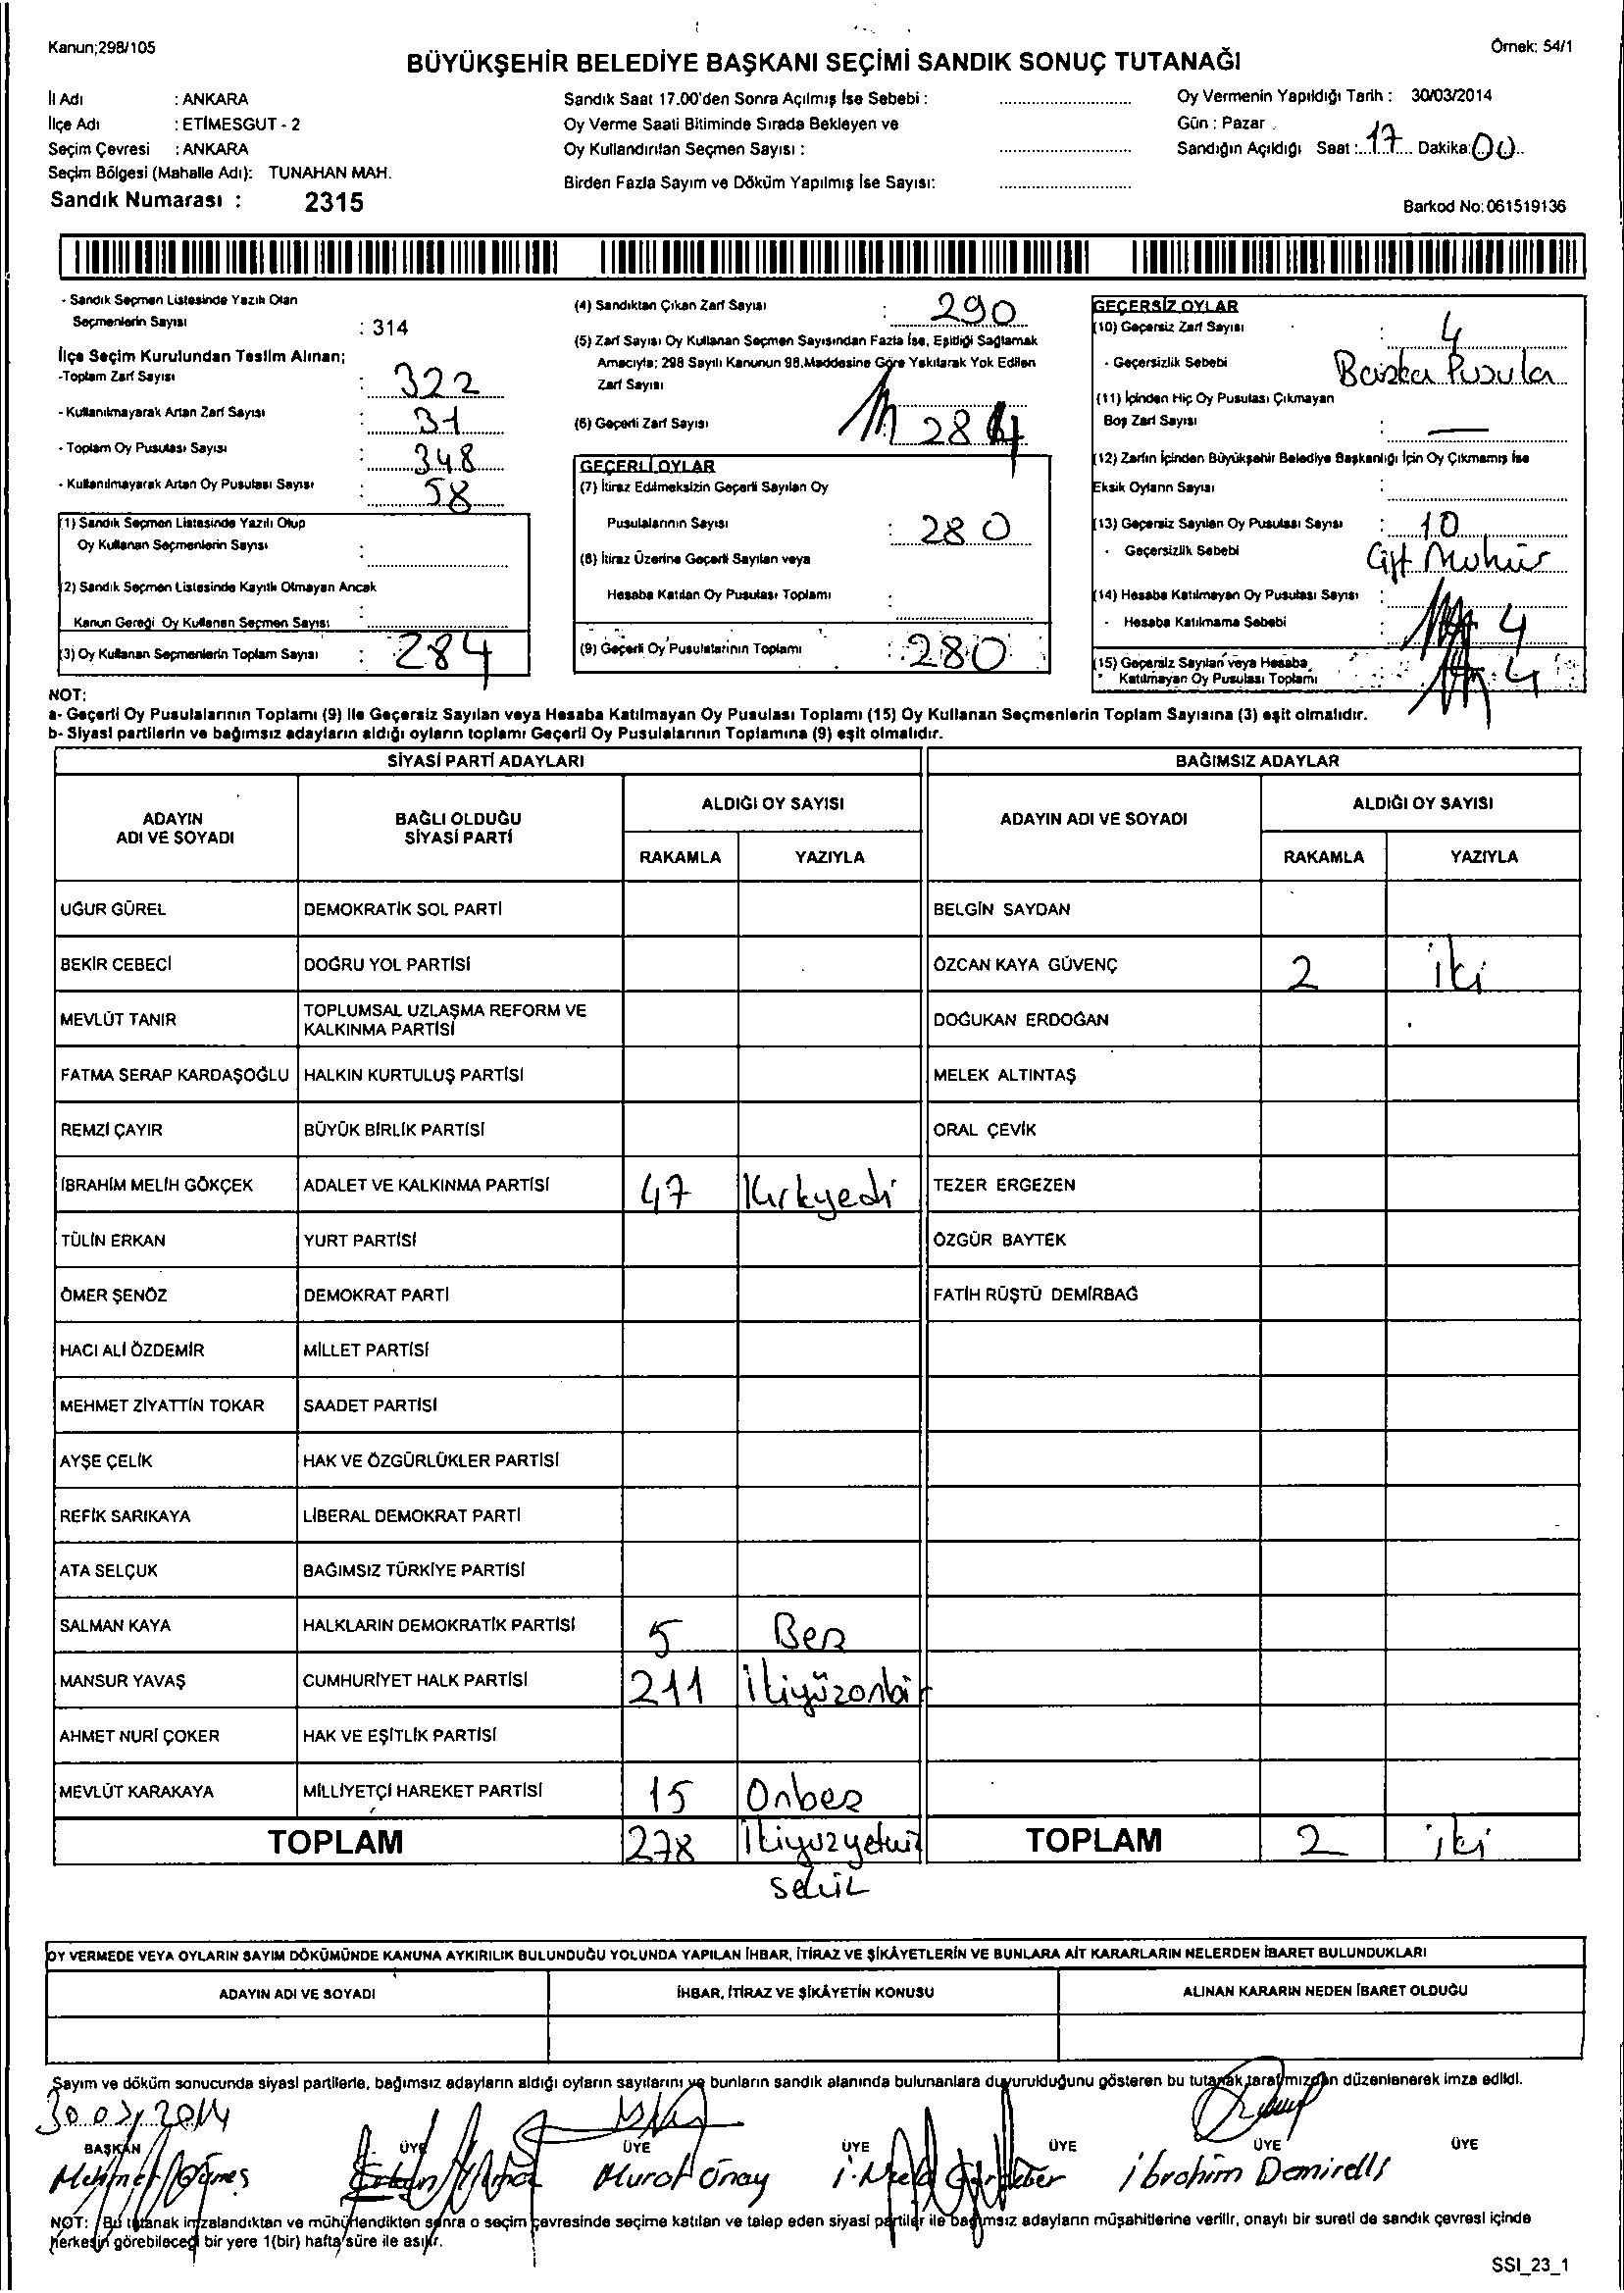 Kanun;298/105
Örnek: 54/1
BÜYÜKŞEHİR BELEDİYE BAŞKANI SEÇİMİ SANDIK SONUÇ TUTANAĞI
İl Adı : ANKARA
İlçe Adı : ETİMESGUT - 2
Seçim Çevresi : ANKARA
Seçim Bölgesi (Mahalle Adı): TUNAHAN MAH.
Sandık Numarası : 2315
Sandık Saat 17.00'den Sonra Açılmış İse Sebebi :
Oy Verme Saati Bitiminde Sırada Bekleyen ve
Oy Kullandırılan Seçmen Sayısı :
Birden Fazla Sayım ve Döküm Yapılmış İse Sayısı:
Oy Vermenin Yapıldığı Tarih : 30/03/2014
Gün : Pazar
Sandığın Açıldığı Saat : 17 Dakika: 00
Barkod No:061519136
- Sandık Seçmen Listesinde Yazılı Olan
Seçmenlerin Sayısı : 314
İlçe Seçim Kurulundan Teslim Alınan;
-Toplam Zarf Sayısı : 322
- Kullanılmayarak Artan Zarf Sayısı : 31
- Toplam Oy Pusulası Sayısı : 348
- Kullanılmayarak Artan Oy Pusulası Sayısı : 58
(1) Sandık Seçmen Listesinde Yazılı Olup
Oy Kullanan Seçmenlerin Sayısı :
(2) Sandık Seçmen Listesinde Kayıtlı Olmayan Ancak
Kanun Gereği Oy Kullanan Seçmen Sayısı :
(3) Oy Kullanan Seçmenlerin Toplam Sayısı : 284
(4) Sandıktan Çıkan Zarf Sayısı : 290
(5) Zarf Sayısı Oy Kullanan Seçmen Sayısından Fazla İse, Eşitliği Sağlamak
Amacıyla; 298 Sayılı Kanunun 98.Maddesine Göre Yakılarak Yok Edilen
Zarf Sayısı
(6) Geçerli Zarf Sayısı 284
GEÇERLİ OYLAR
(7) İtiraz Edilmeksizin Geçerli Sayılan Oy
Pusulalarının Sayısı : 280
(8) İtiraz Üzerine Geçerli Sayılan veya
Hesaba Katılan Oy Pusulası Toplamı :
(9) Geçerli Oy Pusulalarının Toplamı : 280
GEÇERSİZ OYLAR
(10) Geçersiz Zarf Sayısı : 4
- Geçersizlik Sebebi Başka Pusula
(11) İçinden Hiç Oy Pusulası Çıkmayan
Boş Zarf Sayısı : —
(12) Zarfın İçinden Büyükşehir Belediye Başkanlığı İçin Oy Çıkmamış İse
Eksik Oyların Sayısı :
(13) Geçersiz Sayılan Oy Pusulası Sayısı : 10
- Geçersizlik Sebebi Çift Mühür
(14) Hesaba Katılmayan Oy Pusulası Sayısı :
- Hesaba Katılmama Sebebi : 4
(15) Geçersiz Sayılan veya Hesaba
Katılmayan Oy Pusulası Toplamı 4
NOT:
a- Geçerli Oy Pusulalarının Toplamı (9) İle Geçersiz Sayılan veya Hesaba Katılmayan Oy Pusulası Toplamı (15) Oy Kullanan Seçmenlerin Toplam Sayısına (3) eşit olmalıdır.
b- Siyasi partilerin ve bağımsız adayların aldığı oyların toplamı Geçerli Oy Pusulalarının Toplamına (9) eşit olmalıdır.
SİYASİ PARTİ ADAYLARI BAĞIMSIZ ADAYLAR
ADAYIN
ADI VE SOYADI
BAĞLI OLDUĞU
SİYASİ PARTİ
ALDIĞI OY SAYISI
RAKAMLA YAZIYLA
ADAYIN ADI VE SOYADI
ALDIĞI OY SAYISI
RAKAMLA YAZIYLA
UĞUR GÜREL DEMOKRATİK SOL PARTİ BELGİN SAYDAN
BEKİR CEBECİ DOĞRU YOL PARTİSİ ÖZCAN KAYA GÜVENÇ 2 iki
MEVLÜT TANIR TOPLUMSAL UZLAŞMA REFORM VE
KALKINMA PARTİSİ DOĞUKAN ERDOĞAN
FATMA SERAP KARDAŞOĞLU HALKIN KURTULUŞ PARTİSİ MELEK ALTINTAŞ
REMZİ ÇAYIR BÜYÜK BİRLİK PARTİSİ ORAL ÇEVİK
İBRAHİM MELİH GÖKÇEK ADALET VE KALKINMA PARTİSİ 47 Kırkyedi TEZER ERGEZEN
TÜLİN ERKAN YURT PARTİSİ ÖZGÜR BAYTEK
ÖMER ŞENÖZ DEMOKRAT PARTİ FATİH RÜŞTÜ DEMİRBAĞ
HACI ALİ ÖZDEMİR MİLLET PARTİSİ
MEHMET ZİYATTİN TOKAR SAADET PARTİSİ
AYŞE ÇELİK HAK VE ÖZGÜRLÜKLER PARTİSİ
REFİK SARIKAYA LİBERAL DEMOKRAT PARTİ
ATA SELÇUK BAĞIMSIZ TÜRKİYE PARTİSİ
SALMAN KAYA HALKLARIN DEMOKRATİK PARTİSİ 5 Beş
MANSUR YAVAŞ CUMHURİYET HALK PARTİSİ 211 ikiyüzonbir
AHMET NURİ ÇOKER HAK VE EŞİTLİK PARTİSİ
MEVLÜT KARAKAYA MİLLİYETÇİ HAREKET PARTİSİ 15 Onbeş
TOPLAM 278 ikiyüzyetmiş TOPLAM 2 iki
sekiz
OY VERMEDE VEYA OYLARIN SAYIM DÖKÜMÜNDE KANUNA AYKIRILIK BULUNDUĞU YOLUNDA YAPILAN İHBAR, İTİRAZ VE ŞİKÂYETLERİN VE BUNLARA AİT KARARLARIN NELERDEN İBARET BULUNDUKLARI
ADAYIN ADI VE SOYADI İHBAR, İTİRAZ VE ŞİKÂYETİN KONUSU ALINAN KARARIN NEDEN İBARET OLDUĞU
Sayım ve döküm sonucunda siyasi partilerle, bağımsız adayların aldığı oyların sayılarını ve bunların sandık alanında bulunanlara duyurulduğunu gösteren bu tutanak tarafımızdan düzenlenerek imza edildi.
30.03.2014
BAŞKAN ÜYE ÜYE ÜYE ÜYE ÜYE ÜYE
Mehmet Güneş Murat Önay İbrahim Demirelli
NOT: Bu tutanak imzalandıktan ve mühürlendikten sonra o seçim çevresinde seçime katılan ve talep eden siyasi partiler ile bağımsız adayların müşahitlerine verilir, onaylı bir sureti de sandık çevresi içinde
herkesin görebileceği bir yere 1(bir) hafta süre ile asılır.
SSI_23_1